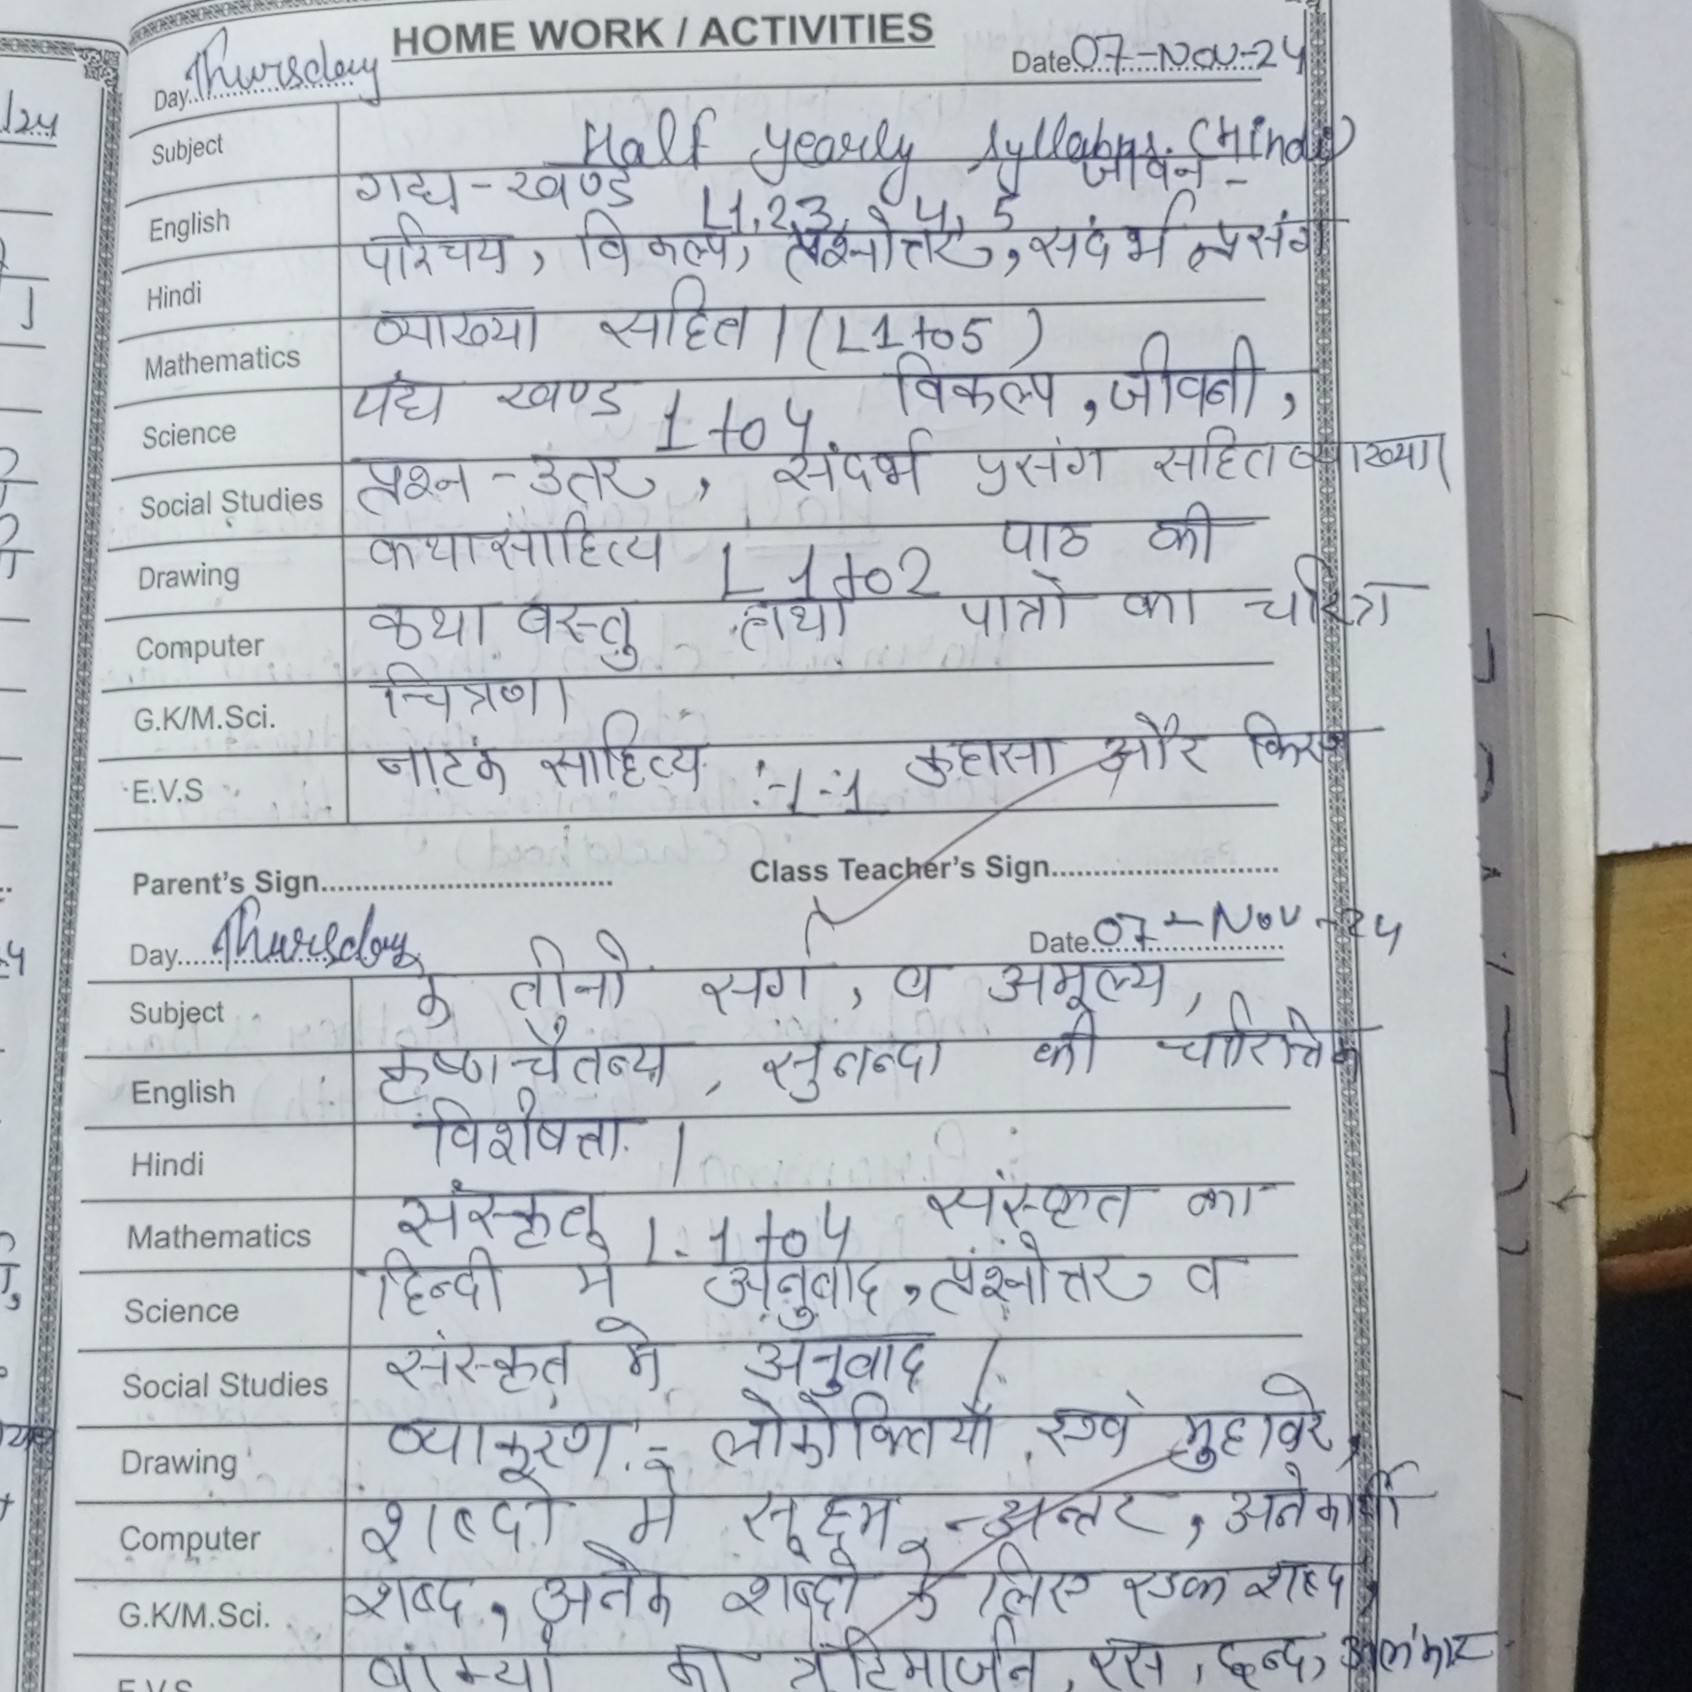 HOME WORK / ACTIVITIES
Day Thursday Date 07-Nov-24
Subject Half yearly syllabus. (Hindi)
English गद्य-खण्ड L1,2,3, 4, 5 जीवन-
Hindi परिचय, विकल्प, प्रश्नोत्तर, संदर्भ प्रसंग
Mathematics व्याख्या सहित। (L1to5)
Science पद्य खण्ड 1 to 4. विकल्प, जीवनी,
Social Studies प्रश्न-उत्तर, संदर्भ प्रसंग सहित व्याख्या।
Drawing कथासाहित्य L 1to2 पाठ की
Computer कथा वस्तु तथा पात्रो का चरित्र
G.K/M.Sci. चित्रण।
E.V.S नाटक साहित्य :-L-1 कुहासा और किरण
Parent's Sign Class Teacher's Sign
Day Thursday Date 07-Nov-24
Subject के तीनो सर्ग, व अमूल्य,
English कृष्णचैतन्य, सुनन्दा की चारित्रिक
Hindi विशेषता।
Mathematics संस्कृत L-1to4 संस्कृत का
Science हिन्दी मे अनुवाद, प्रश्नोत्तर व
Social Studies संस्कृत मे अनुवाद।
Drawing व्याकरण:- लोकोक्तियाँ एवं मुहावरे,
Computer शब्दो मे सूक्ष्म-अन्तर, अनेकार्थी
G.K/M.Sci. शब्द, अनेक शब्दो के लिए एक शब्द,
E.V.S वाक्यो का त्रुटिमार्जन, रस, छन्द, अलंकार